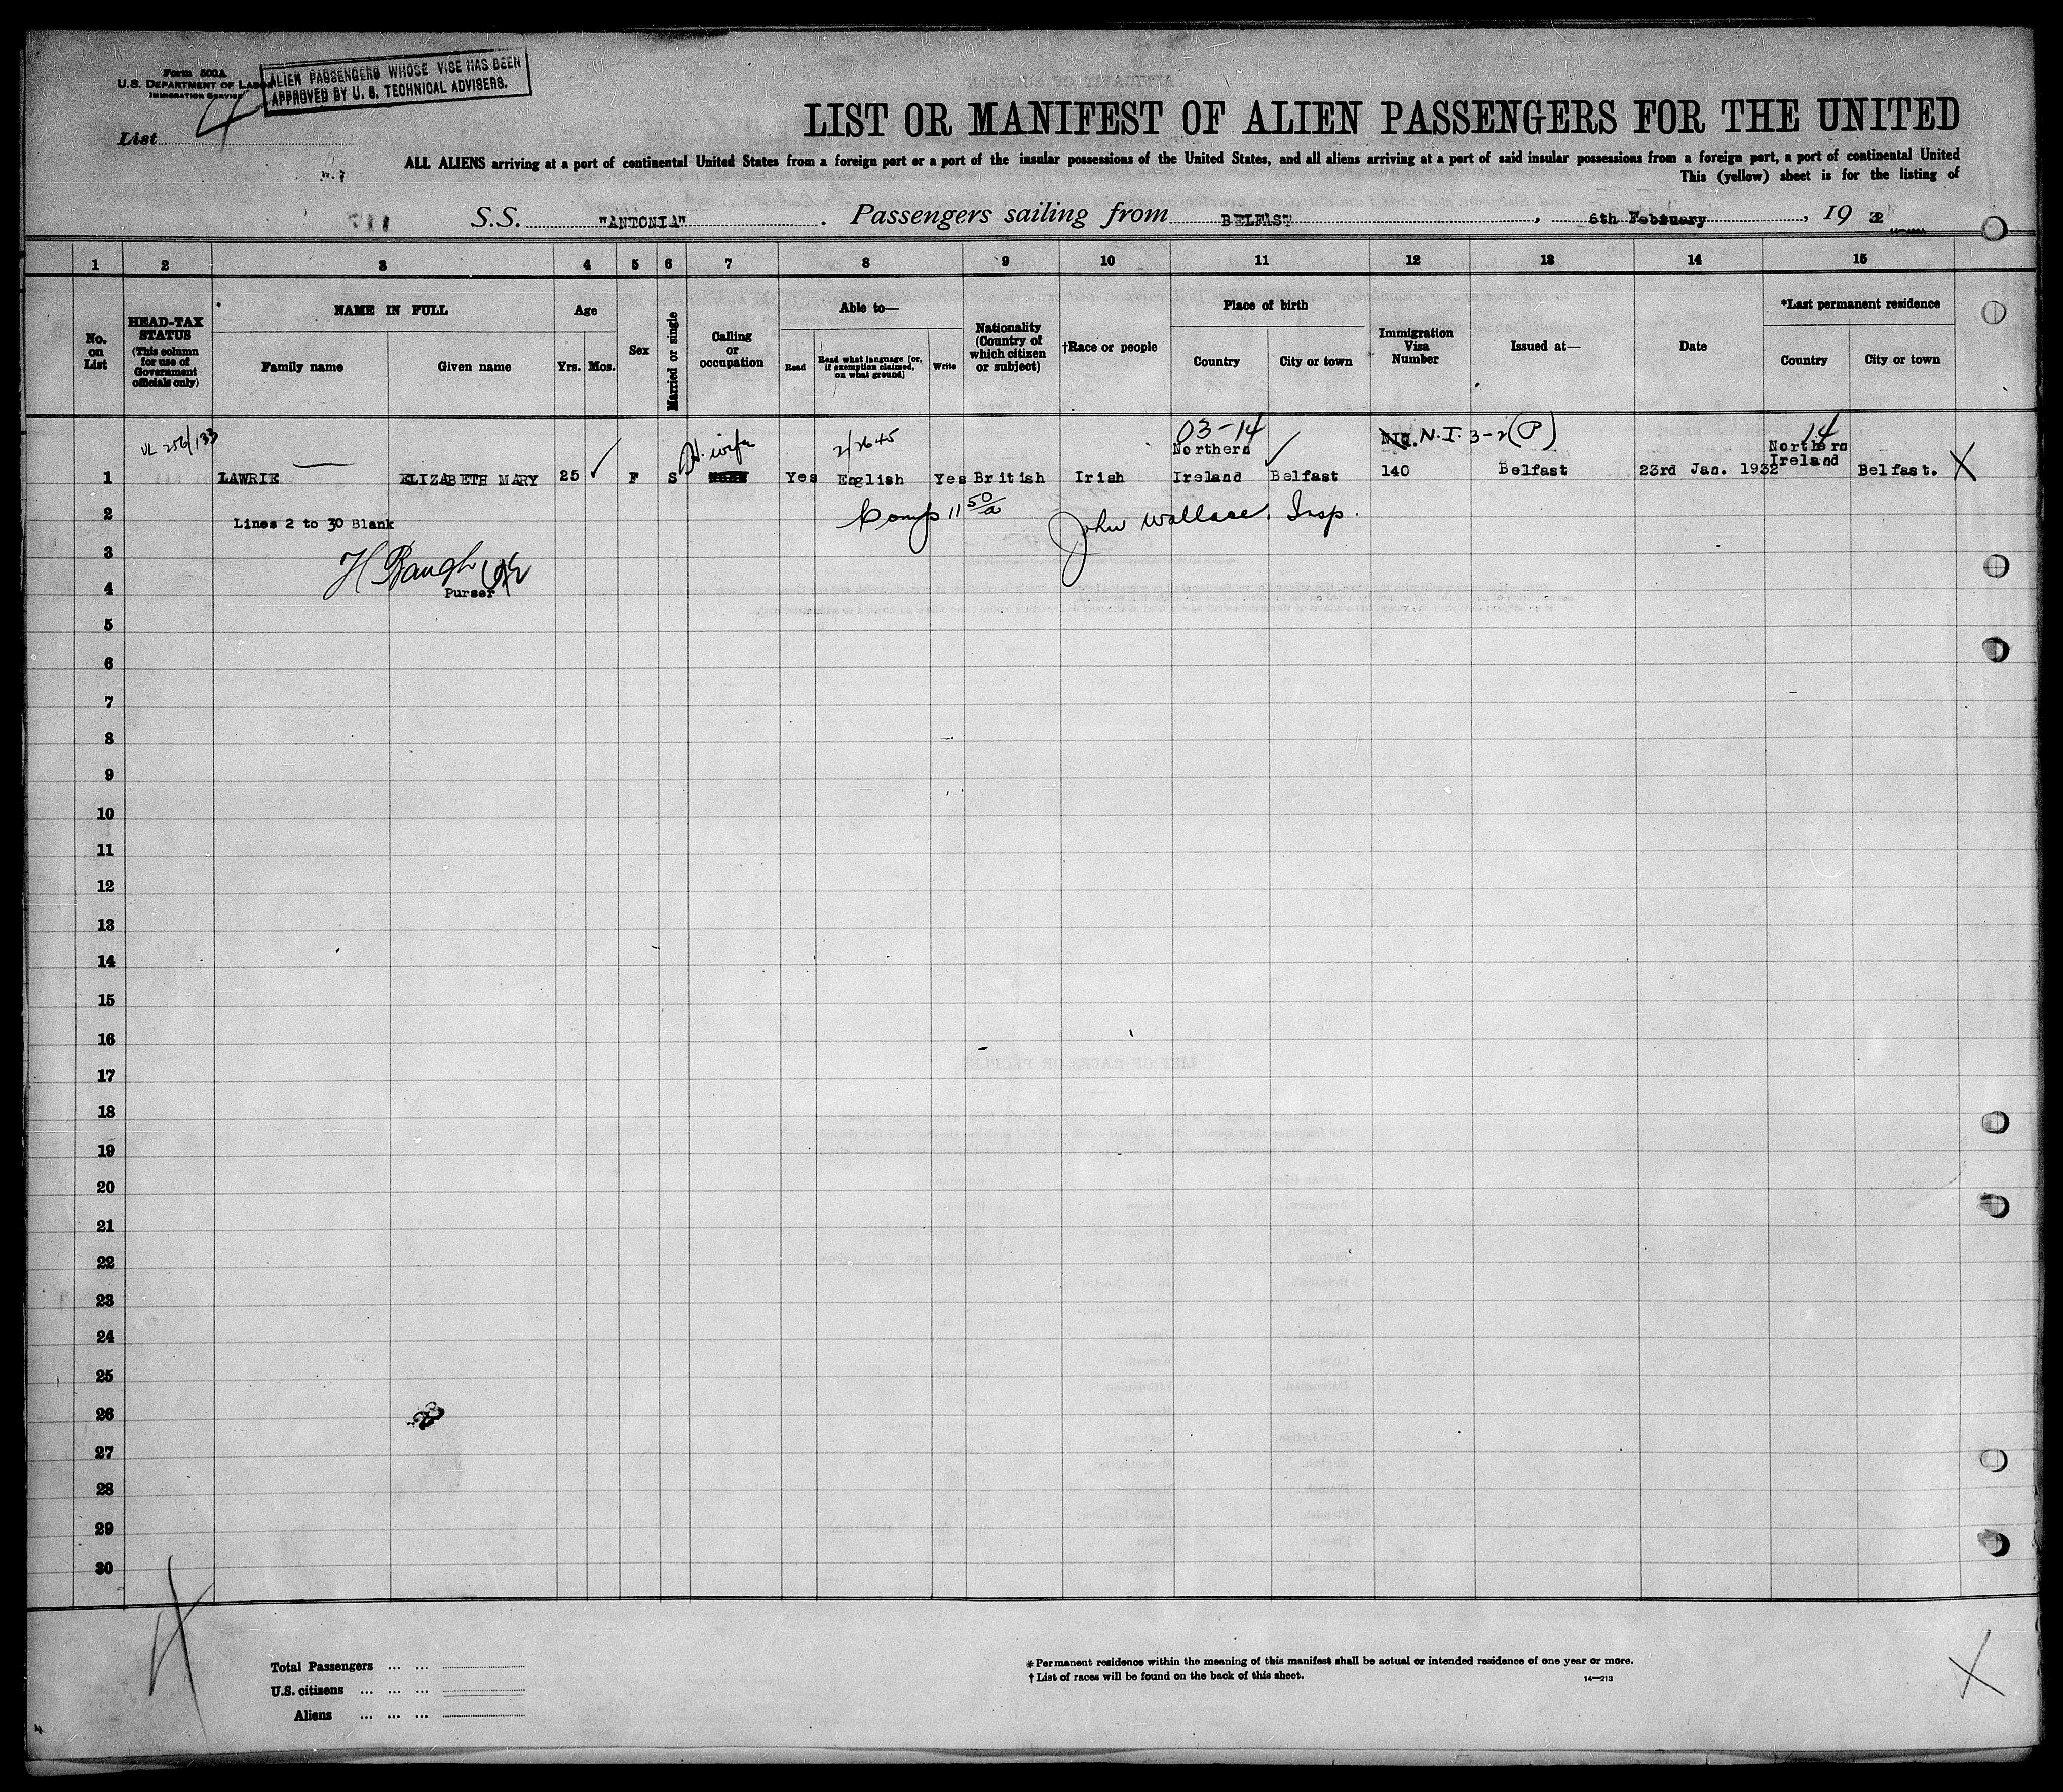 Form 500A
U.S. DEPARTMENT OF LABOR
IMMIGRATION SERVICE
ALIEN PASSENGERS WHOSE VISE HAS BEEN
APPROVED BY U. S. TECHNICAL ADVISERS.
List 4
LIST OR MANIFEST OF ALIEN PASSENGERS FOR THE UNITED
ALL ALIENS arriving at a port of continental United States from a foreign port or a port of the insular possessions of the United States, and all aliens arriving at a port of said insular possessions from a foreign port, a port of continental United
This (yellow) sheet is for the listing of
S.S. "ANTONIA". Passengers sailing from BELFAST, 6th February, 19 32
1 2 3 4 5 6 7 8 9 10 11 12 13 14 15
No. on List
HEAD-TAX STATUS (This column for use of Government officials only)
NAME IN FULL
Family name
Given name
Age
Yrs. Mos.
Sex
Married or single
Calling or occupation
Able to—
Read
Read what language [or, if exemption claimed, on what ground]
Write
Nationality (Country of which citizen or subject)
†Race or people
Place of birth
Country
City or town
Immigration Visa Number
Issued at—
Date
*Last permanent residence
Country
City or town
VL 256/133
H. wife
2/2645
03-14
N.I. 3-2(P)
14
1 LAWRIE ELIZABETH MARY 25 ✓ F S Yes English Yes British Irish Northern Ireland ✓ Belfast 140 Belfast 23rd Jan. 1932 Northern Ireland Belfast. X
2 Lines 2 to 30 Blank
John Wallace. Insp.
3
4 Purser
5
6
7
8
9
10
11
12
13
14
15
16
17
18
19
20
21
22
23
24
25
26
27
28
29
30
X
X
Total Passengers ... ...
U.S. citizens ... ... ...
Aliens ... ... ...
*Permanent residence within the meaning of this manifest shall be actual or intended residence of one year or more.
†List of races will be found on the back of this sheet.
14—213